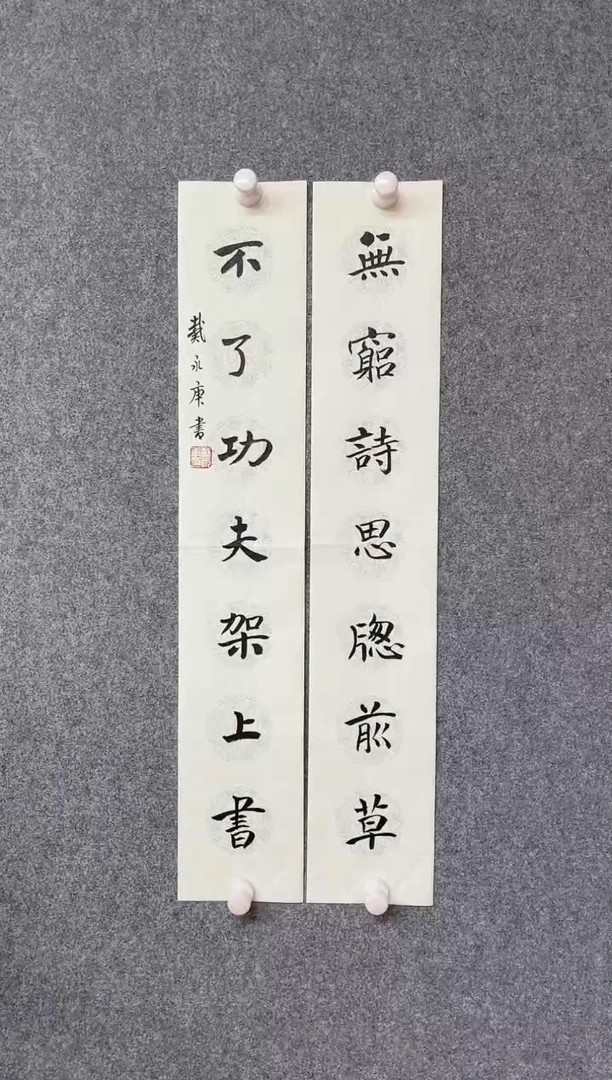 無窮詩思牕前草
不了功夫架上書
戴永庚書